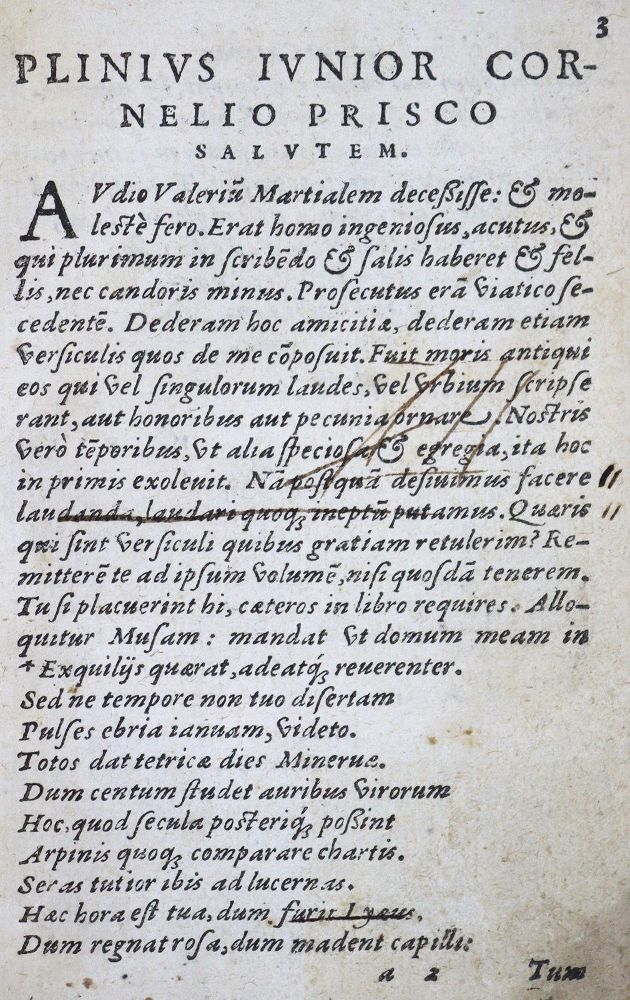 3
PLINIVS IVNIOR COR-
NELIO PRISCO
SALVTEM.
AVdio Valeriũ Martialem deceßisse: & mo-
lestè fero. Erat homo ingeniosus, acutus, &
qui plurimum in scribẽdo & salis haberet & fel-
lis, nec candoris minus. Prosecutus erã viatico se-
cedentẽ. Dederam hoc amicitiæ, dederam etiam
versiculis quos de me cõposuit. Fuit moris antiqui
eos qui vel singulorum laudes, vel vrbium scripse
rant, aut honoribus aut pecunia ornare. Nostris
verò tẽporibus, vt alia speciosa & egregia, ita hoc
in primis exoleuit. Nã postquã desiuimus facere
laudanda, laudari quoqꝫ ineptũ putamus. Quæris
qui sint versiculi quibus gratiam retulerim? Re-
mitterẽ te ad ipsum volumẽ, nisi quosdã tenerem.
Tu si placuerint hi, cæteros in libro requires. Allo-
quitur Musam: mandat vt domum meam in
* Exquilijs quærat, adeatqꝫ reuerenter.
Sed ne tempore non tuo disertam
Pulses ebria ianuam, videto.
Totos dat tetricæ dies Mineruæ.
Dum centum studet auribus virorum
Hoc, quod secula posteriqꝫ poßint
Arpinis quoqꝫ comparare chartis.
Seras tutior ibis ad lucernas.
Hæc hora est tua, dum furit Lyæus.
Dum regnat rosa, dum madent capilli:
a 2 Tum